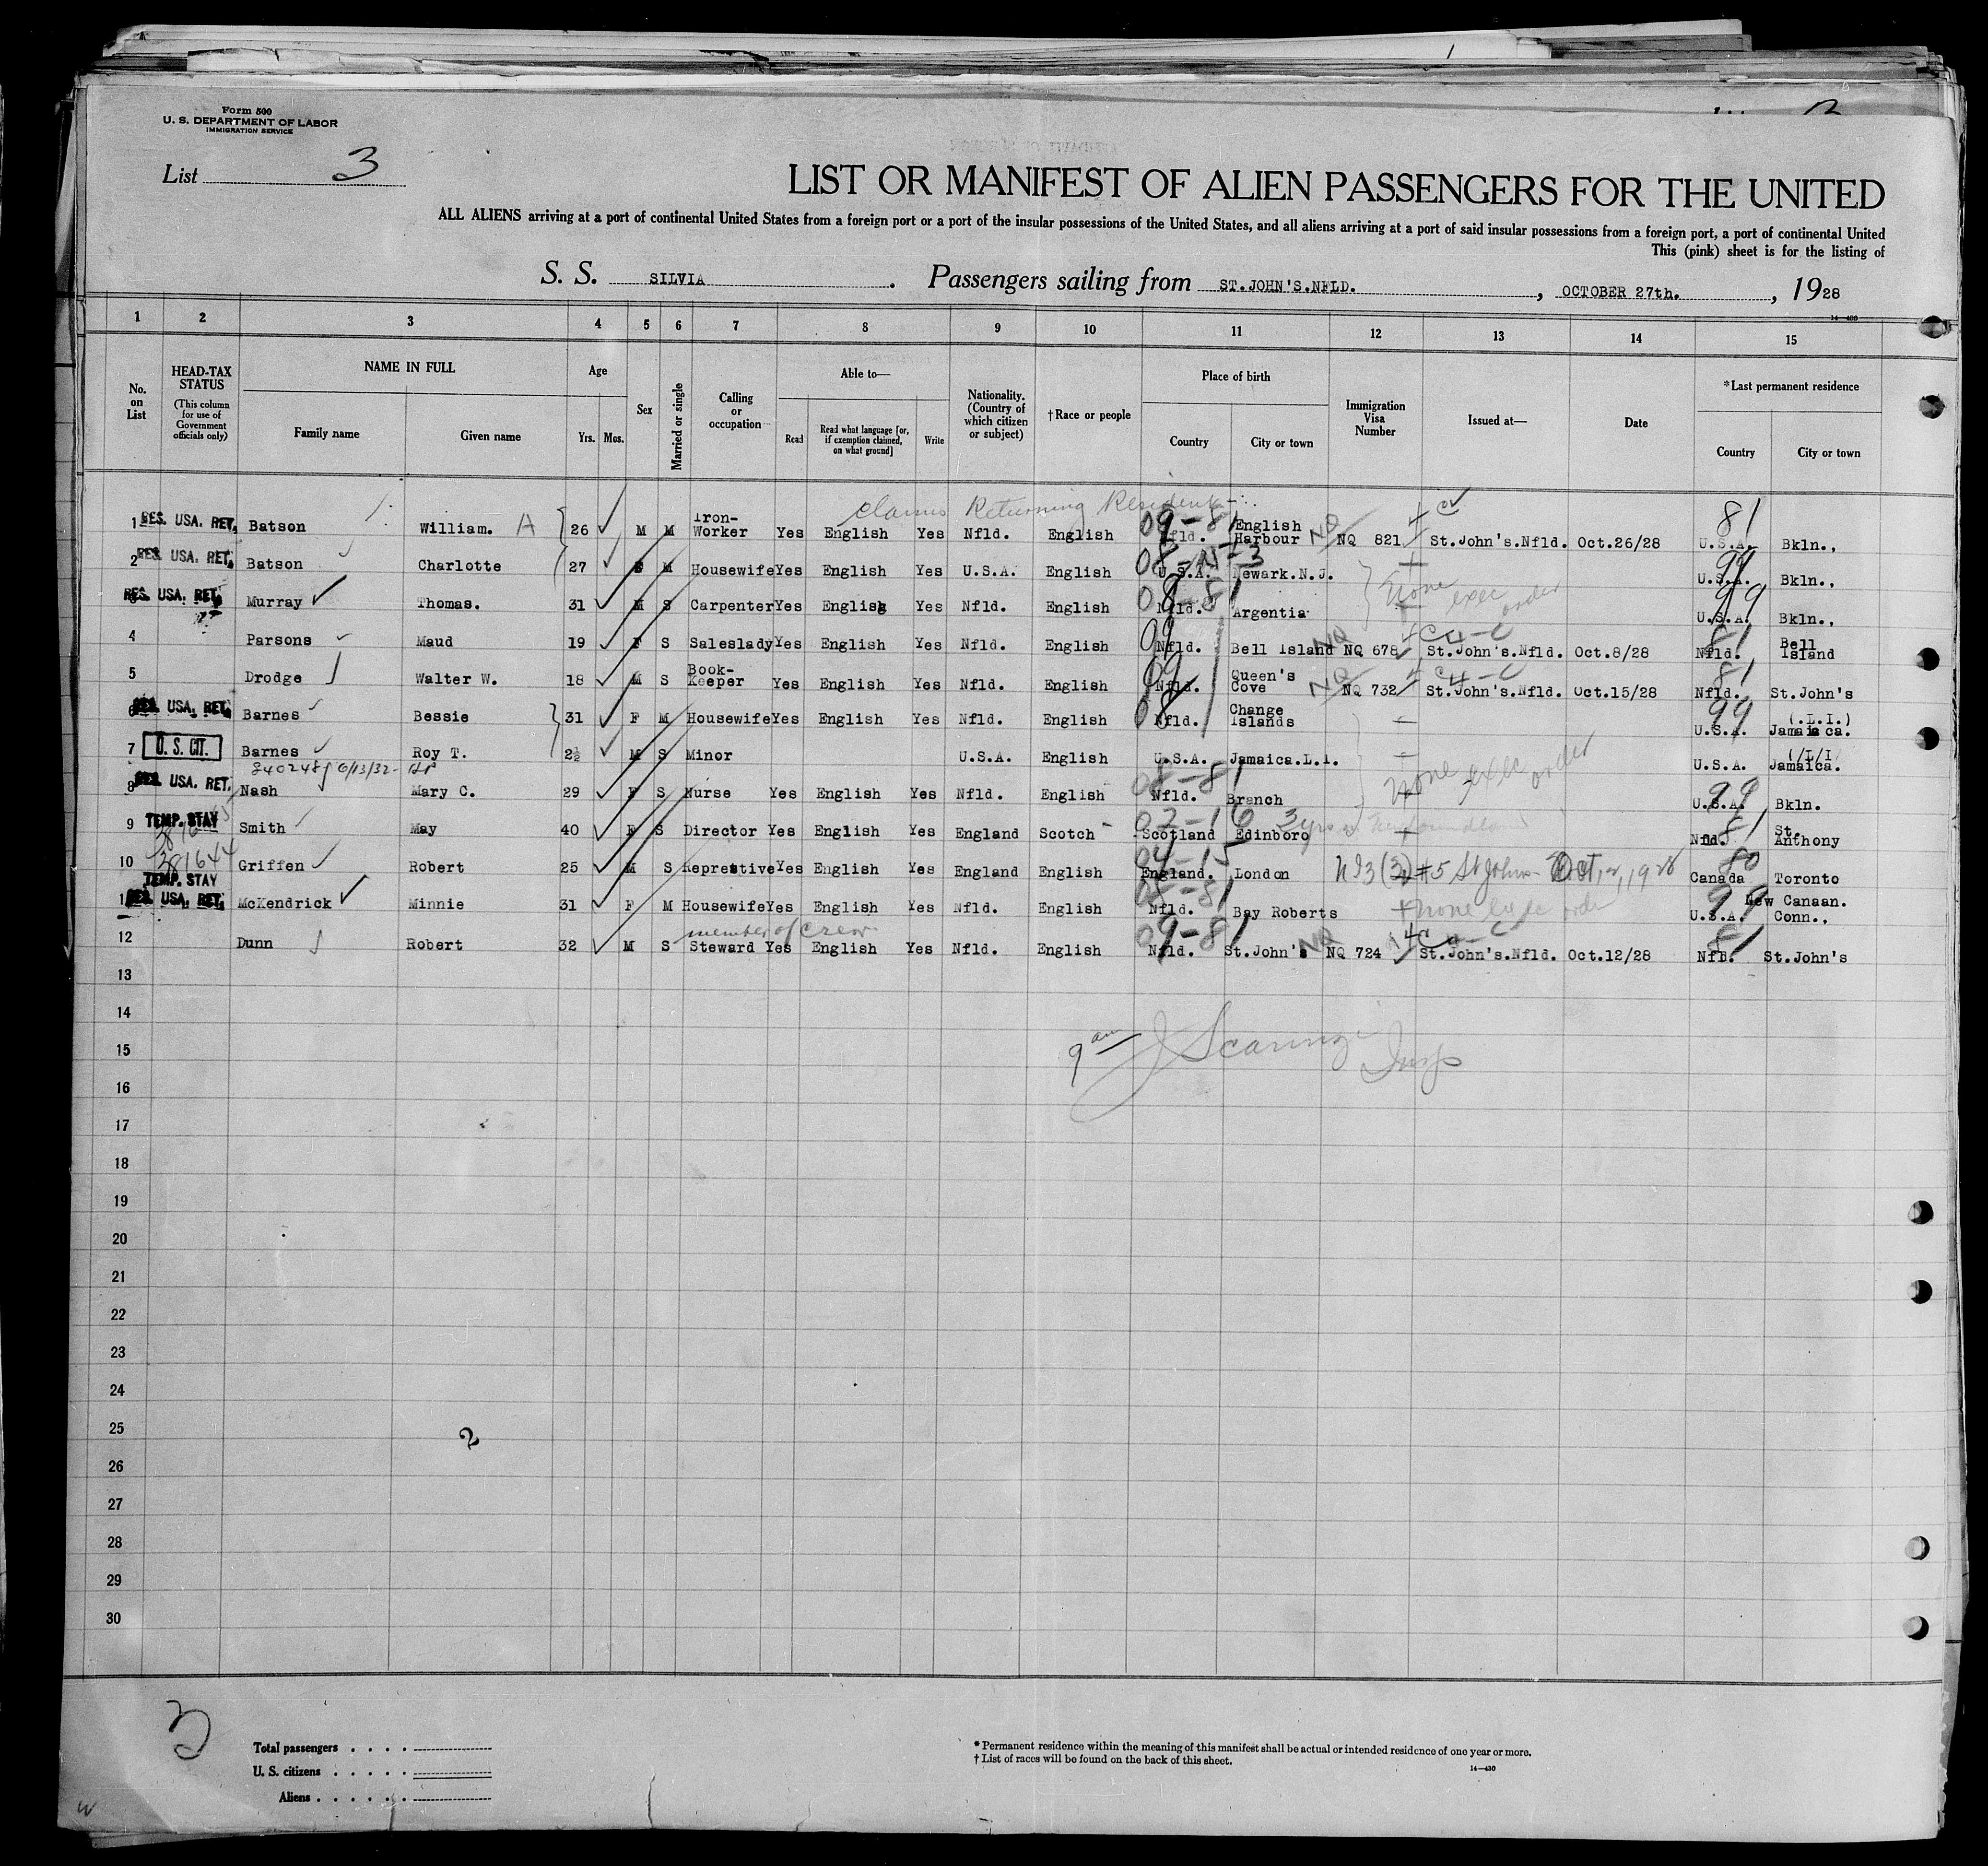 Form 500
U. S. DEPARTMENT OF LABOR
IMMIGRATION SERVICE
List 3
LIST OR MANIFEST OF ALIEN PASSENGERS FOR THE UNITED
ALL ALIENS arriving at a port of continental United States from a foreign port or a port of the insular possessions of the United States, and all aliens arriving at a port of said insular possessions from a foreign port, a port of continental United
This (pink) sheet is for the listing of
S. S. SILVIA. Passengers sailing from ST.JOHN'S.NFLD., OCTOBER 27th., 1928
14—430
1 2 3 4 5 6 7 8 9 10 11 12 13 14 15
No. on List
HEAD-TAX STATUS (This column for use of Government officials only)
NAME IN FULL
Family name Given name
Age
Yrs. Mos.
Sex
Married or single
Calling or occupation
Able to—
Read Read what language [or, if exemption claimed, on what ground] Write
Nationality. (Country of which citizen or subject)
†Race or people
Place of birth
Country City or town
Immigration Visa Number
Issued at—
Date
*Last permanent residence
Country City or town
claims Returning Resident
1 RES. USA. RET. Batson William. A 26 M M Iron-Worker Yes English Yes Nfld. English 09-81 Nfld. English Harbour NQ NQ 821 St.John's.Nfld. Oct.26/28 81 U.S.A. Bkln.,
2 RES. USA. RET. Batson Charlotte 27 F M Housewife Yes English Yes U.S.A. English U.S.A. Newark.N.J. 99 U.S.A. Bkln.,
3 RES. USA. RET. Murray Thomas. 31 M S Carpenter Yes English Yes Nfld. English 08-81 Nfld. Argentia none exec order 99 U.S.A. Bkln.,
4 Parsons Maud 19 F S Saleslady Yes English Yes Nfld. English 09 Nfld. Bell Island NQ NQ 678 St.John's.Nfld. Oct.8/28 81 Nfld. Bell Island
5 Drodge Walter W. 18 M S Book-Keeper Yes English Yes Nfld. English 09 Nfld. Queen's Cove NQ NQ 732 St.John's.Nfld. Oct.15/28 81 Nfld. St.John's
6 RES. USA. RET. Barnes Bessie 31 F M Housewife Yes English Yes Nfld. English 08 Nfld. Change Islands 99 U.S.A. (.L.I.) Jamaica.
7 U. S. CIT. Barnes Roy T. 2½ M S Minor U.S.A. English U.S.A. Jamaica.L.I. U.S.A. Jamaica.
8 RES. USA. RET. Nash Mary C. 29 F S Nurse Yes English Yes Nfld. English 08-81 Nfld. Branch none exec order 99 U.S.A. Bkln.
9 TEMP. STAY Smith May 40 F S Director Yes English Yes England Scotch 02-16 Scotland Edinboro 3 yrs in Newfoundland 81 Nfld. St. Anthony
10 381644 TEMP. STAY Griffen Robert 25 M S Represtive Yes English Yes England English 04-15 England. London #5 St Johns Oct 80 Canada Toronto
11 RES. USA. RET. McKendrick Minnie 31 F M Housewife Yes English Yes Nfld. English 08-81 Nfld. Bay Roberts none exec order 99 U.S.A. New Canaan. Conn.,
member of crew
12 Dunn Robert 32 M S Steward Yes English Yes Nfld. English 09-81 Nfld. St.John's NQ NQ 724 St.John's.Nfld. Oct.12/28 81 Nfld. St.John's
13
14
15
9 am J Scarinzi Insp
16
17
18
19
20
21
22
23
24
25
2
26
27
28
29
30
3
Total passengers
U. S. citizens
Aliens
*Permanent residence within the meaning of this manifest shall be actual or intended residence of one year or more.
†List of races will be found on the back of this sheet.
14—430